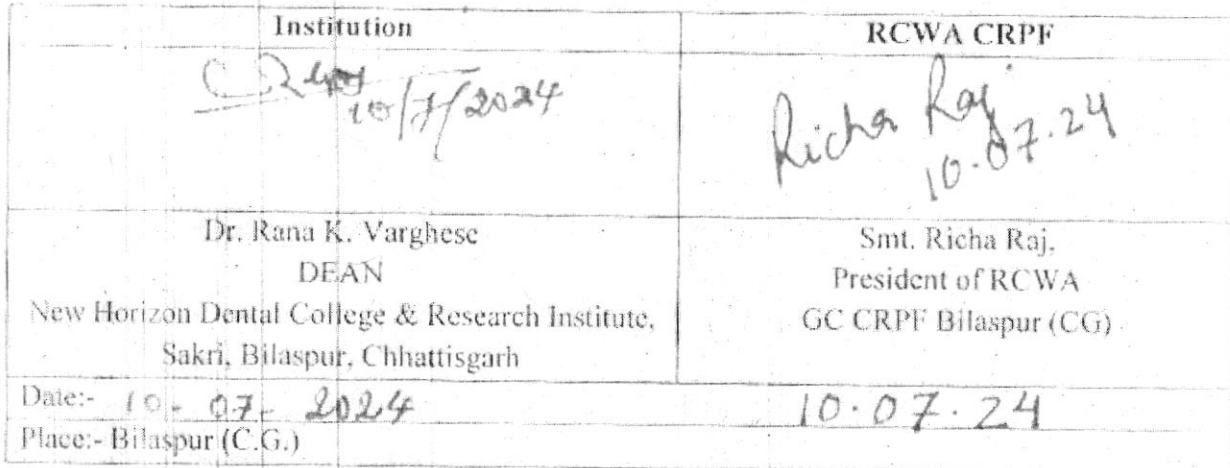 Institution
RCWA CRPF
10/7/2024
Richa Raj
10.07.24
Dr. Rana K. Varghese
DEAN
New Horizon Dental College & Research Institute,
Sakri, Bilaspur, Chhattisgarh
Smt. Richa Raj,
President of RCWA
GC CRPF Bilaspur (CG)
Date:- 10-07-2024
10.07.24
Place:- Bilaspur (C.G.)